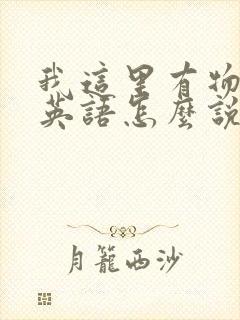 我這里有物
英語怎麼說
月籠西沙